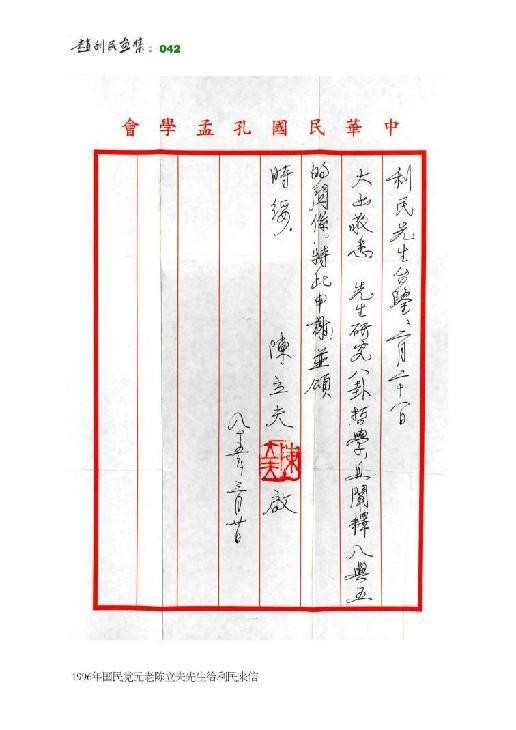 趙利民畫集：042
中華民國孔孟學會
利民先生台鑒：二月二十八日
大函敬悉 先生研究八卦哲學且闡釋八與五
的關係，特此申謝，並頌
時綏
陳立夫 啟
陳立夫
八十五年三月廿日
1996年国民党元老陈立夫先生给利民来信